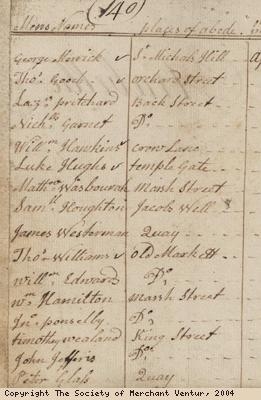 (40)
Mens Names places of abode
George Merrick St Michals Hill
Thos Gooch orchard Street
Lazs pritchard Back Street
Nichs Garnet Do
Willm Hawkins crow Lane
Luke Hughs temple Gate
Mathw Wasbourah Marsh Street
Saml Houghton Jacobs Well
James Westerman Quay
Thos Williams old Markett
willm Edward Do
wm Hamilton marsh Street
Jno ponselby Do
timothy wealand King Street
John Jefferis Do
Peter Glass Quay
Copyright The Society of Merchant Ventur, 2004